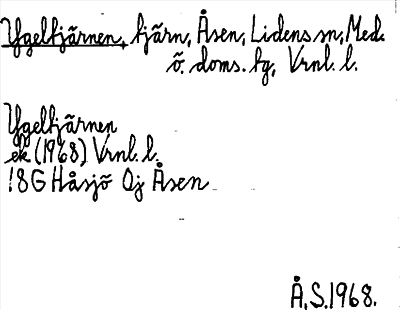 Ygeltjärnen, tjärn, Åsen, Lidens sn, Med.
ö. doms. tg, Vrnl. l.
Ygeltjärnen
ek (1968) Vrnl. l.
18G Håsjö Oj Åsen
Å.S.1968.